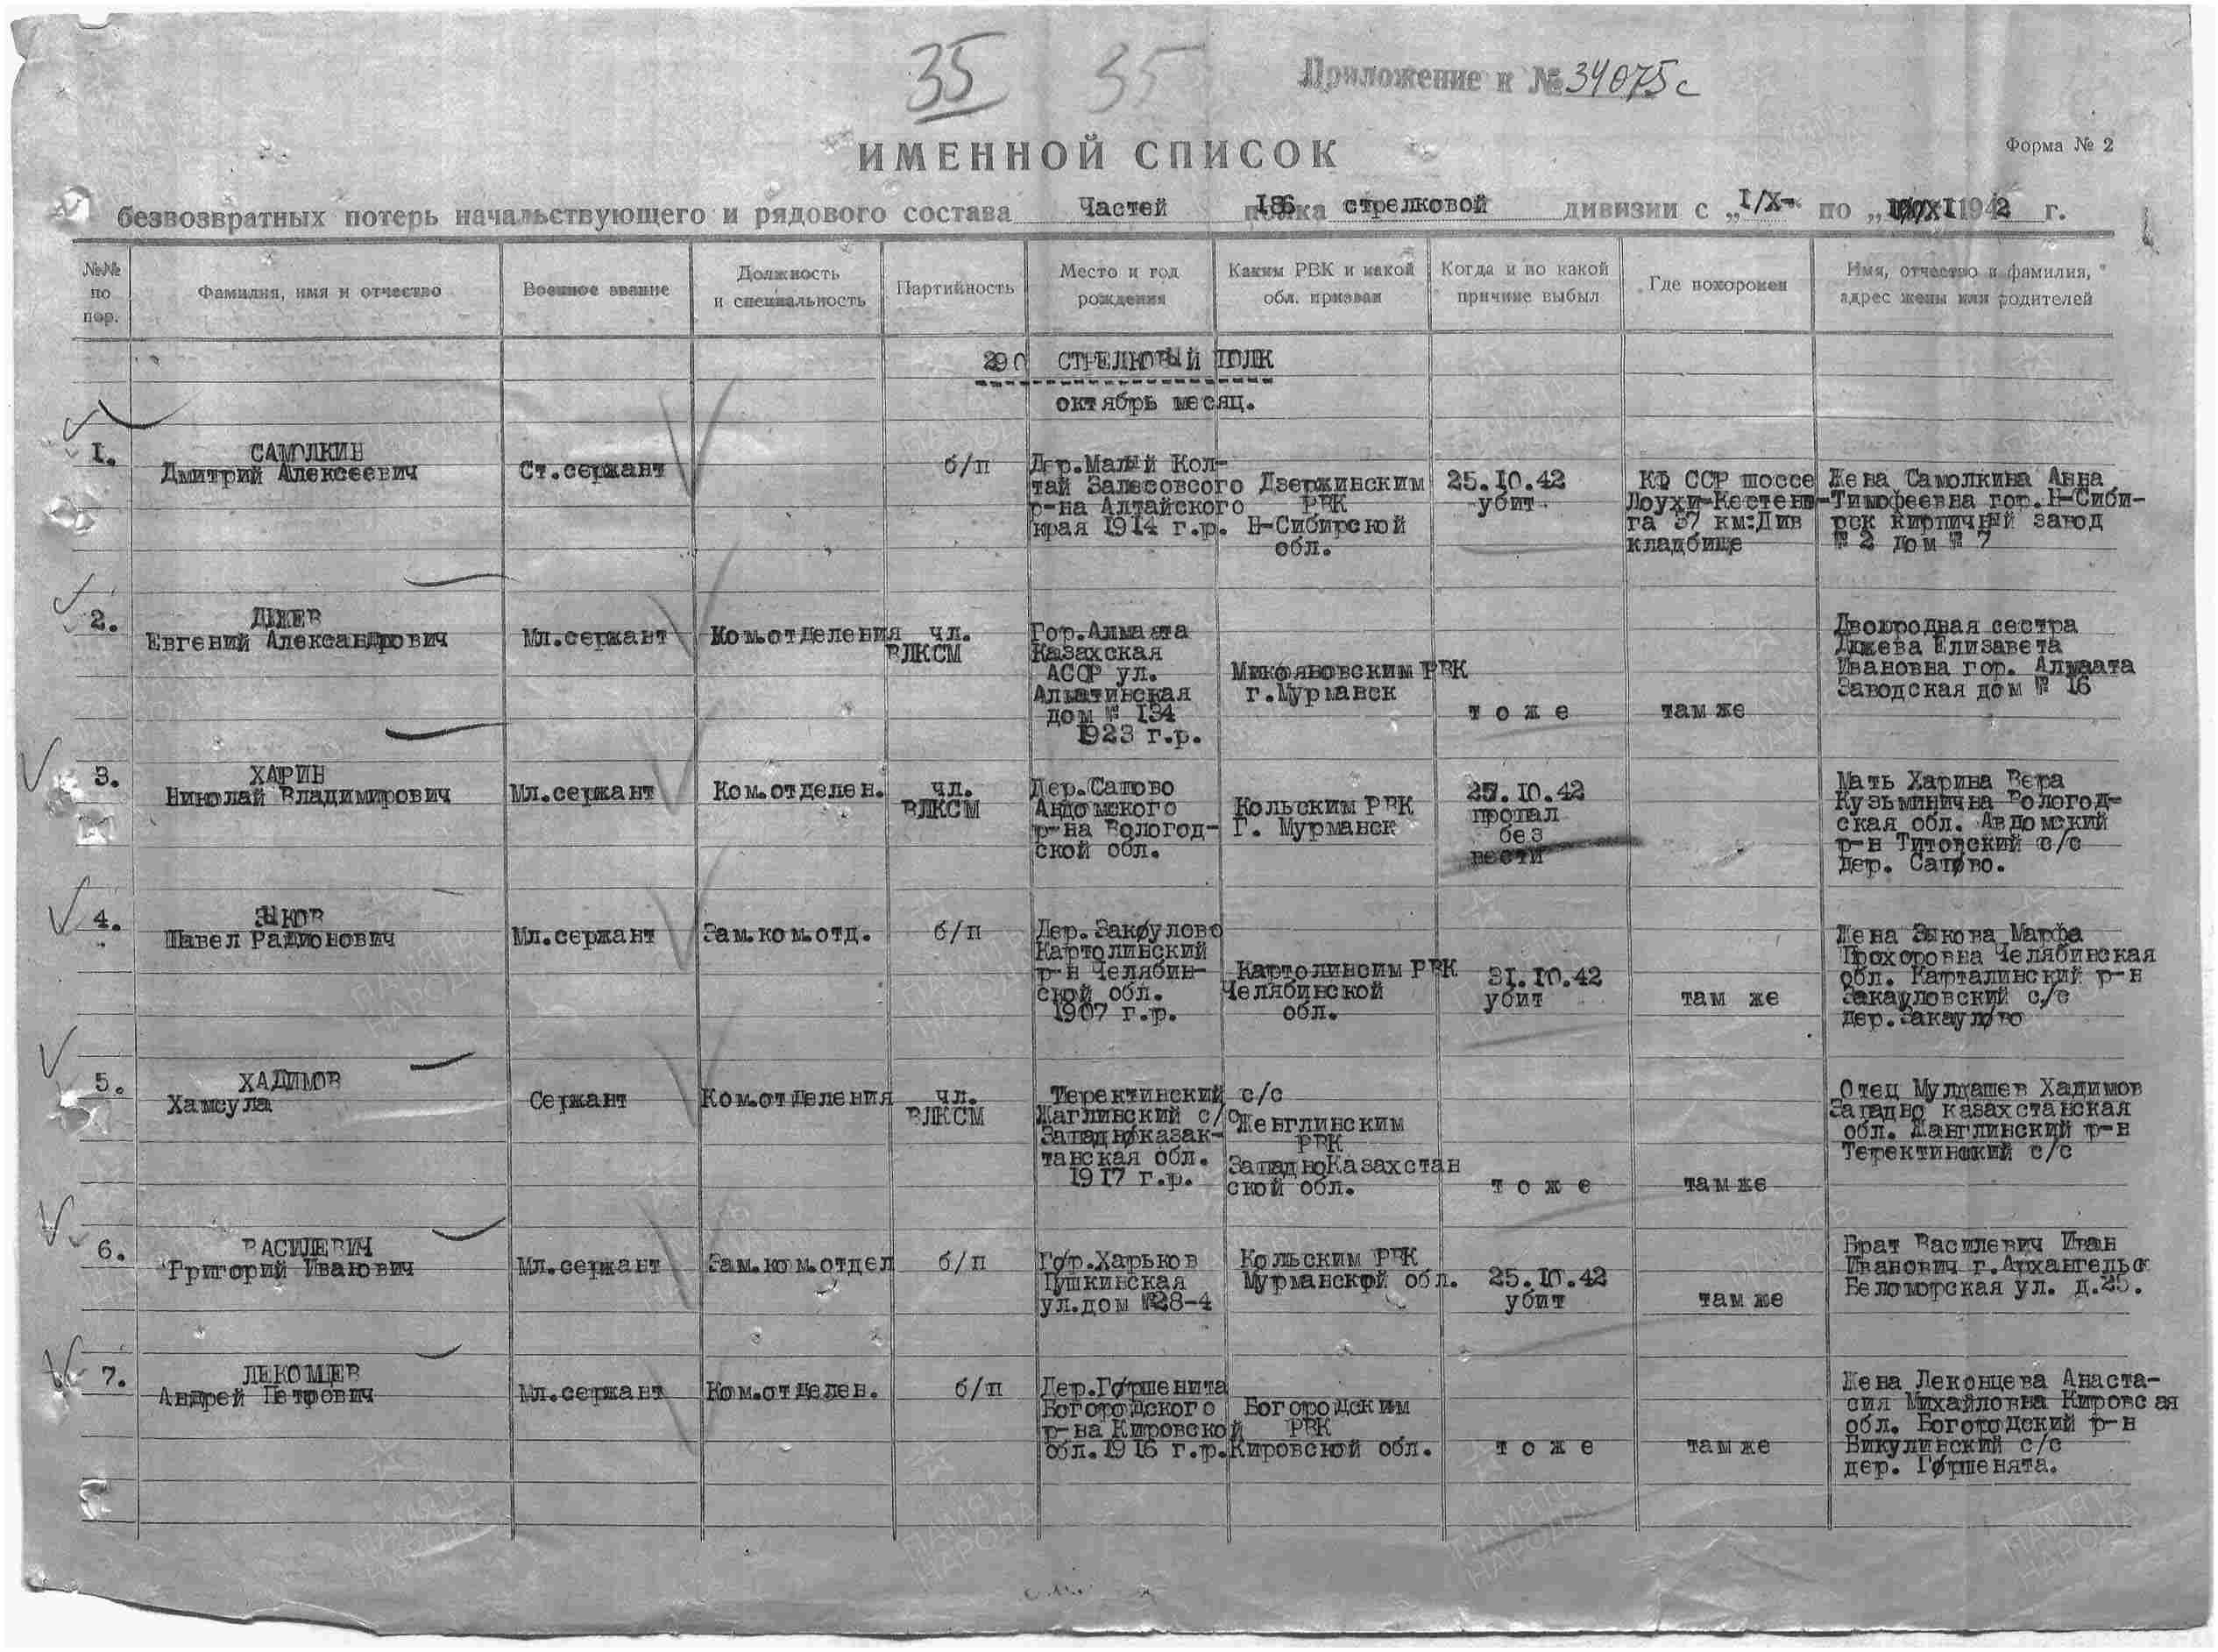 35 35
Приложение к № 34075с
ИМЕННОЙ СПИСОК
Форма № 2
безвозвратных потерь начальствующего и рядового состава Частей 186 стрелковой дивизии с „I/X- по „ 1942 г.
№№ по пор.
Фамилия, имя и отчество
Военное звание
Должность и специальность
Партийность
Место и год рождения
Каким РВК и какой обл. призван
Когда и по какой причине выбыл
Где похоронен
Имя, отчество и фамилия, адрес жены или родителей
290 СТРЕЛКОВЫЙ ПОЛК
октябрь месяц.
1.
САМОЛКИН
Дмитрий Алексеевич
Ст.сержант
б/п
Дер.Малый Кол-
тай Залесовсого
р-на Алтайского
края 1914 г.р.
Дзержинским
РВК
Н-Сибирской
обл.
25.10.42
убит
КФ ССР шоссе
Лоухи-Кестень-
га 37 км:Див
кладбище
Жена Самолкина Анна
Тимофеевна гор.Н-Сиби-
рск кирпичный завод
№ 2 дом № 7
2.
Евгений Александрович
Мл.сержант
Ком.отделения
чл.
ВЛКСМ
Гор.Алмаата
Казахская
АССР ул.
Алматинская
дом № 134
1923 г.р.
Микояновским РВК
г.Мурманск
т о ж е
там же
Двоюродная сестра
Елизавета
Ивановна гор. Алмаата
Заводская дом № 16
3.
ХАРИН
Николай Владимирович
Мл.сержант
Ком.отделен.
чл.
ВЛКСМ
Дер.Сатово
Андомского
р-на Вологод-
ской обл.
Кольским РВК
Г. Мурманск
25.10.42
пропал
без
вести
Мать Харина Вера
Кузьминична Вологод-
ская обл. Авдомский
р-н Титовский с/с
дер. Сатово.
4.
ЗЫКОВ
Павел Радионович
Мл.сержант
Зам.ком.отд.
б/п
Дер.Закоулово
Картолинский
р-н Челябин-
ской обл.
1907 г.р.
Картолинсим РВК
Челябинской
обл.
31.10.42
убит
там же
Жена Зыкова Марфа
Прохоровна Челябинская
обл. Карталинский р-н
Закауловский с/с
дер.Закаулово
5.
ХАДИМОВ
Хамсула
Сержант
Ком.отделения
чл.
ВЛКСМ
Теректинский с/с
Жаглинский с/с
Западноказак-
танская обл.
1917 г.р.
Женглинским
РВК
ЗападноКазахстан
ской обл.
т о ж е
там же
Отец Мулдашев Хадимов
Западно казахстанская
обл. Жанглинский р-н
Теректинский с/с
6.
ВАСИЛЕВИЧ
Григорий Иванович
Мл.сержант
Зам.ком.отдел
б/п
Гор.Харьков
Пушкинская
ул.дом №28-4
Кольским РВК
Мурманской обл.
25.10.42
убит
там же
Брат Василевич Иван
Иванович г.Архангельск
Беломорская ул. д.25.
7.
ЛЕКОМЦЕВ
Андрей Петрович
Мл.сержант
Ком.отделен.
б/п
Дер.Горшенита
Богородского
р-на Кировской
обл.1916 г.р.
Богородским
РВК
Кировской обл.
т о ж е
там же
Жена Леконцева Анаста-
сия Михайловна Кировская
обл. Богородский р-н
Викулинский с/с
дер. Горшенята.